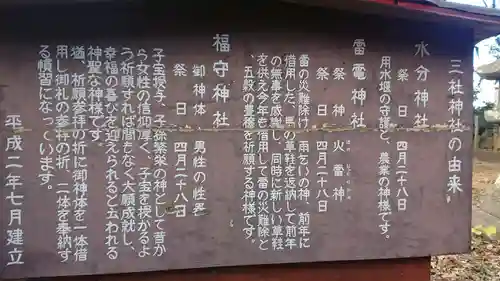 三社神社の由来
水分神社
祭日 四月二十八日
用水堰の守護と、農業の神様です。
雷電神社
祭神 火雷神
祭日 四月二十八日
雷の災難除け、雨乞いの神、前年に
借用した、馬の草鞋を返納して前年
の無事を感謝し、同時に新しい草鞋
を供え今年も借用して雷の災難除と
五穀の豊穣を祈願する神様です。
福守神社
御神体 男性の性器
祭日 四月二十八日
子宝授け、子孫繁栄の神として昔か
ら女性の信仰厚く、子宝を授かるよ
う祈願すれば間もなく大願成就し、
幸福の喜びを迎えられると云われる
神聖な神様です。
猶、祈願参拝の折に御神体を一体借
用し御礼の参拝の折、二体を奉納す
る慣習になっています。
平成二年七月建立